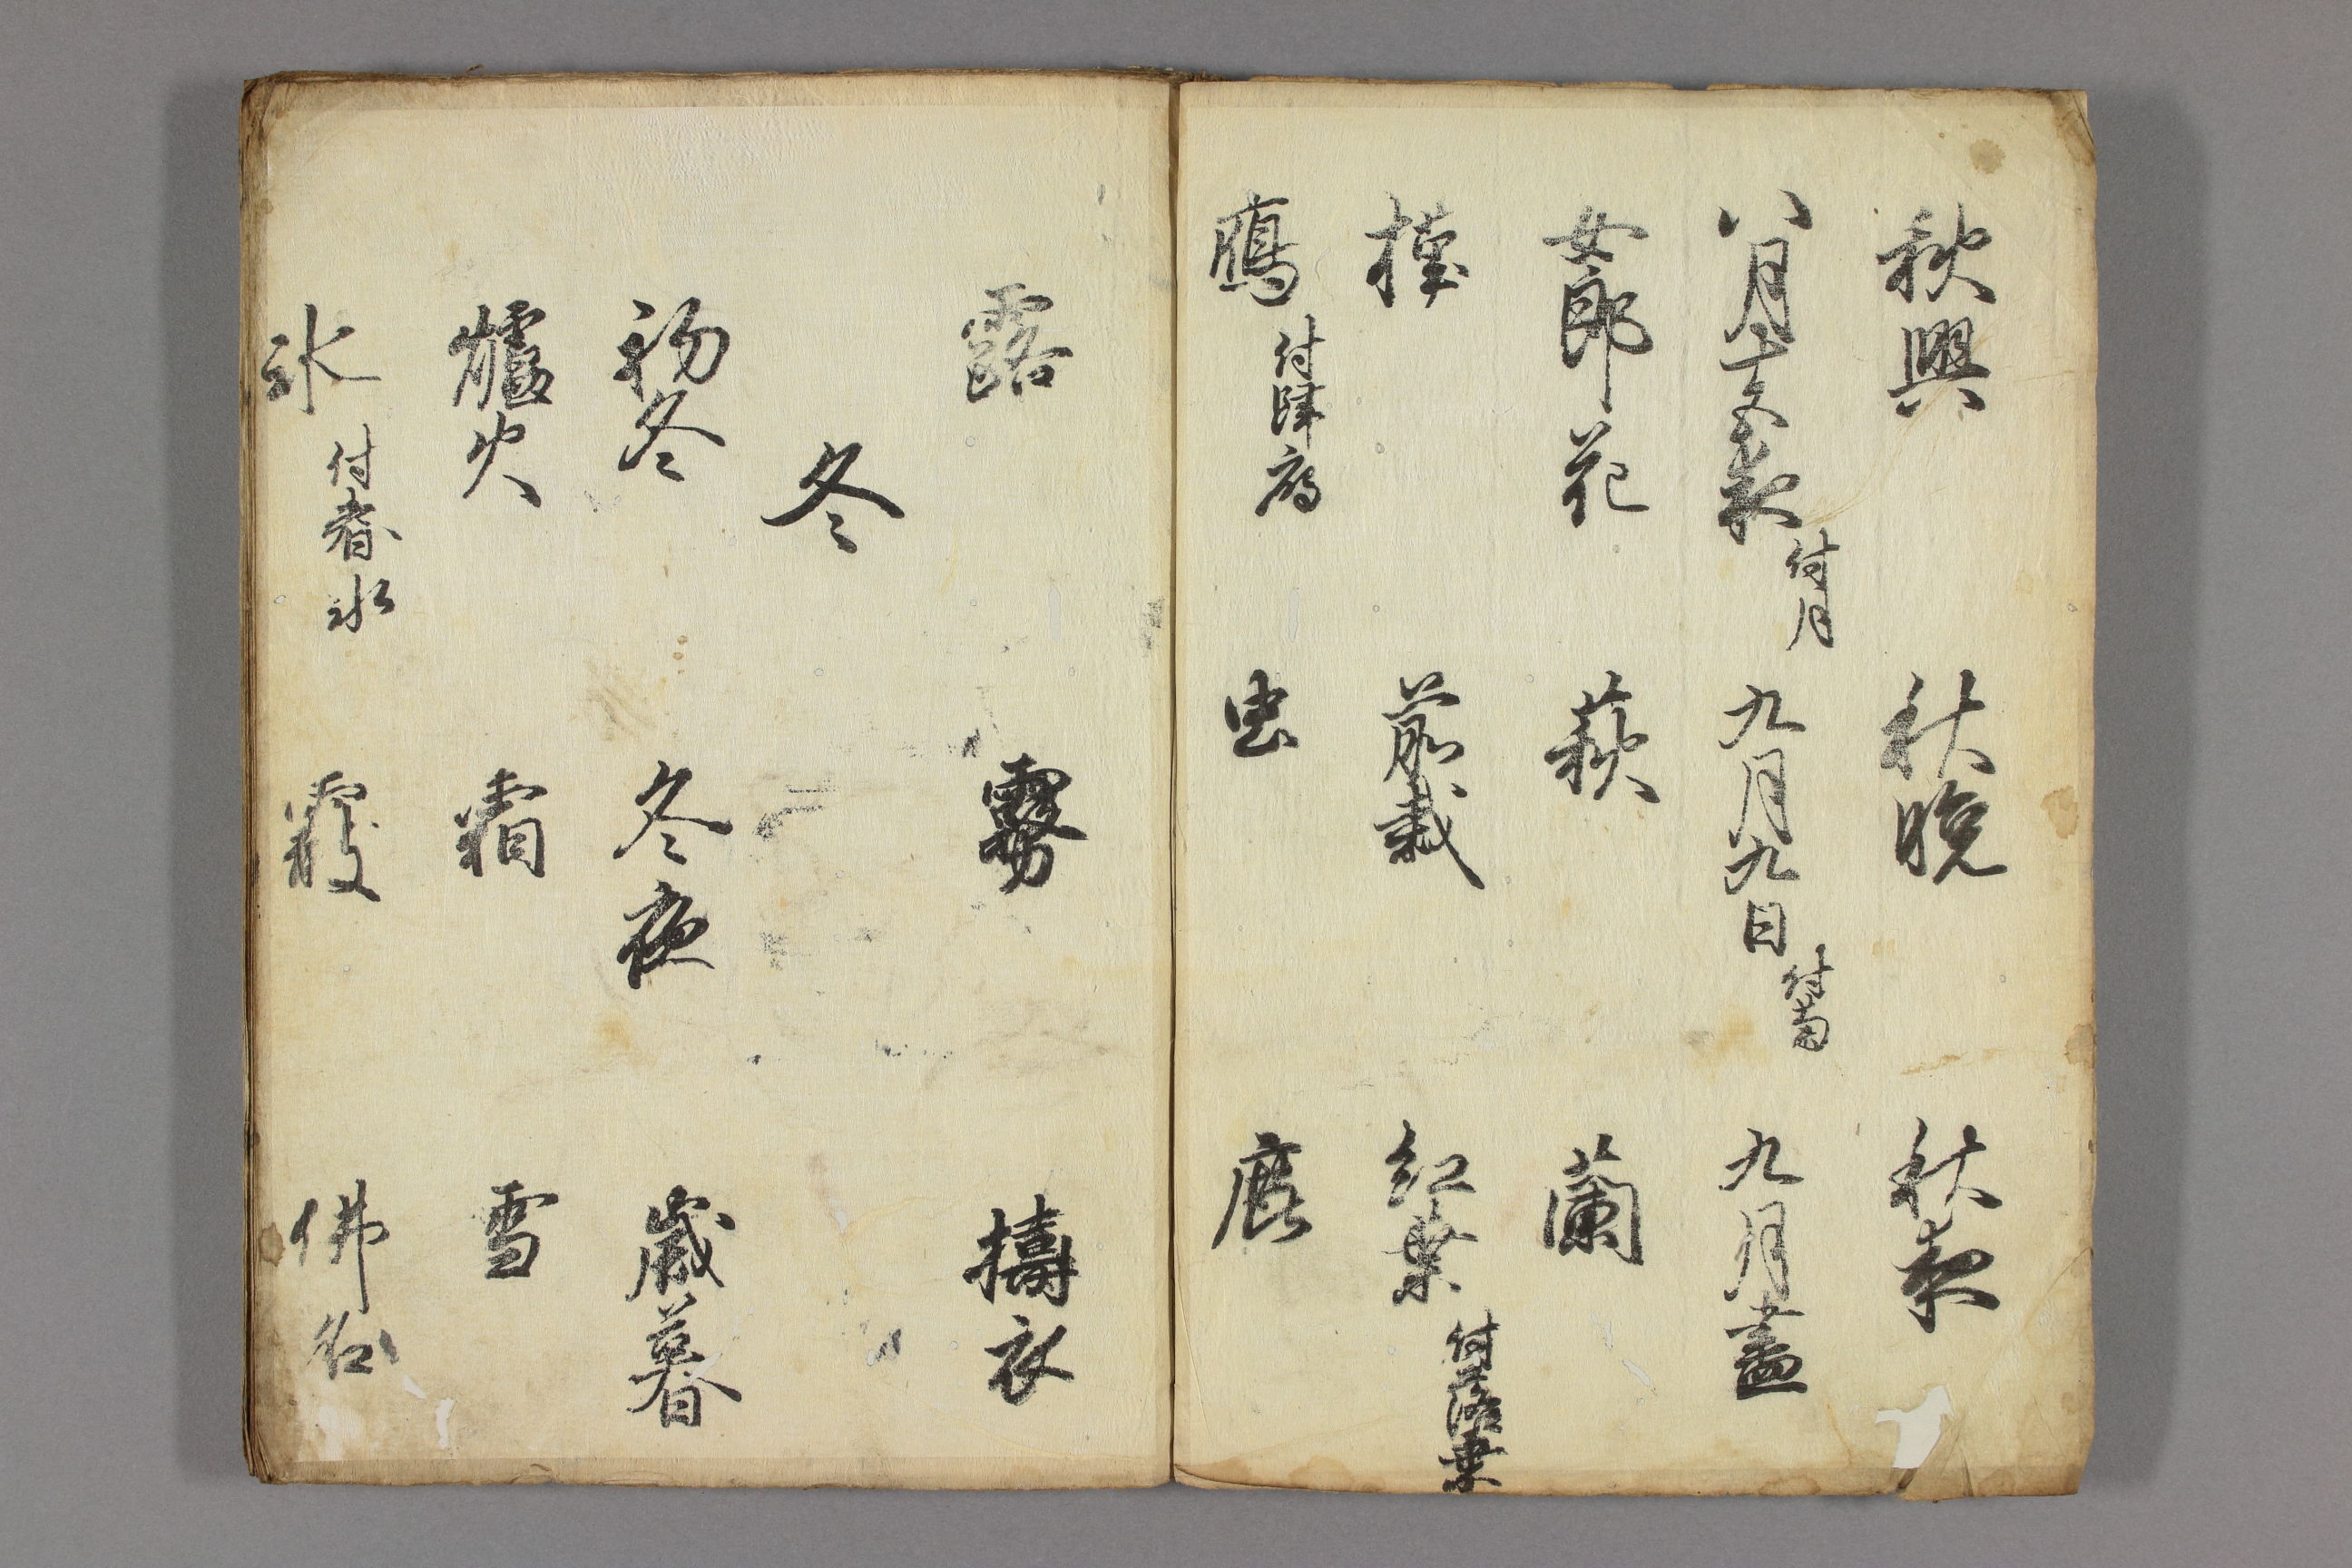 秋興　秋晩　秋夜
八月十五夜 付月　九月九日 付菊　九月盡
女郎花　萩　蘭
槿　前栽　紅葉 付落葉
鴈 付歸鴈　虫　鹿
露　霧　擣衣
冬
初冬　冬夜　歳暮
爐火　霜　雪
氷 付春氷　霰　佛名